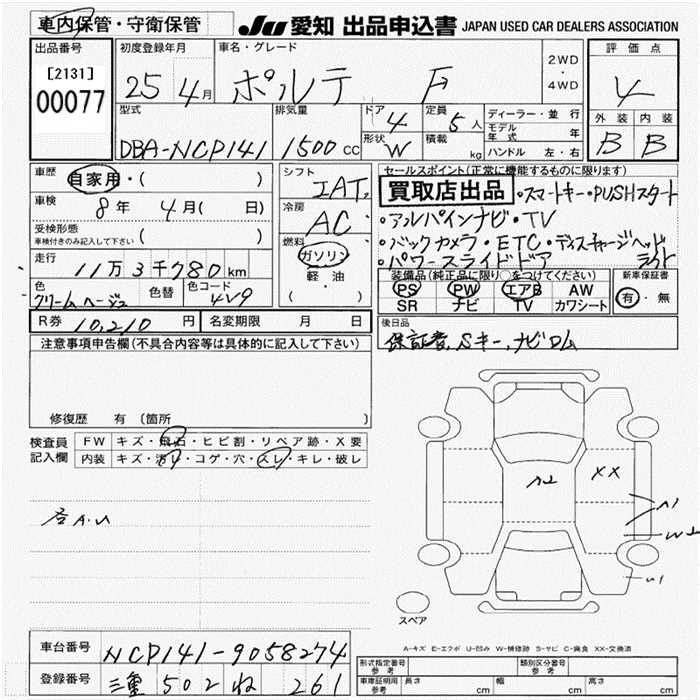 車内保管・守衛保管 JU 愛知 出品申込書 JAPAN USED CAR DEALERS ASSOCIATION
出品番号 初度登録年月 車名・グレード 評価点
[2131]
00077
25 4月 ポルテ F 2WD・4WD 4
型式 排気量 ドア 4 定員 5人 ディーラー・並行 外装 内装
DBA-NCP141 1500 CC 形状 W 積載 kg モデル年式 年 B B
ハンドル 左・右
車歴 自家用・( ) シフト IAT セールスポイント(正常に機能するものに限ります)
買取店出品 ・スマートキー・PUSHスタート
車検 8年 4月( 日) 冷房 AC ・アルパインナビ・TV
受検形態 車検付きのみ記入して下さい ( ) 燃料 ガソリン ・バックカメラ・ETC・ディスチャージヘッドライト
軽・油 ・パワースライドドア
走行 11万3千780km ( ) 装備品(純正品に限り○をつけてください) 新車保証書
色 クリームベージュ 色替 色コード 4V9 PS PW エアB AW 有・無
SR ナビ TV カワシート
R券 10,210円 名変期限 月 日 後日品
保証書,Sキー,ナビロム
注意事項申告欄(不具合内容等は具体的に記入して下さい)
修復歴 有(箇所 )
検査員記入欄 FW キズ・飛石・ヒビ割・リペア跡・X要
内装 キズ・汚れ・コゲ・穴・スレ・キレ・破レ
各A.U
A2 XX
A1
W2
U1
スペア
A-キズ E-エクボ U-凹み W-補修跡 S-サビ C-腐食 XX-交換済
車台番号 NCP141-9058274
登録番号 三重 502 ね 261
形式指定番号 参考 類別区分番号 参考
車庫証明用 参考 長さ cm 幅 cm 高さ cm